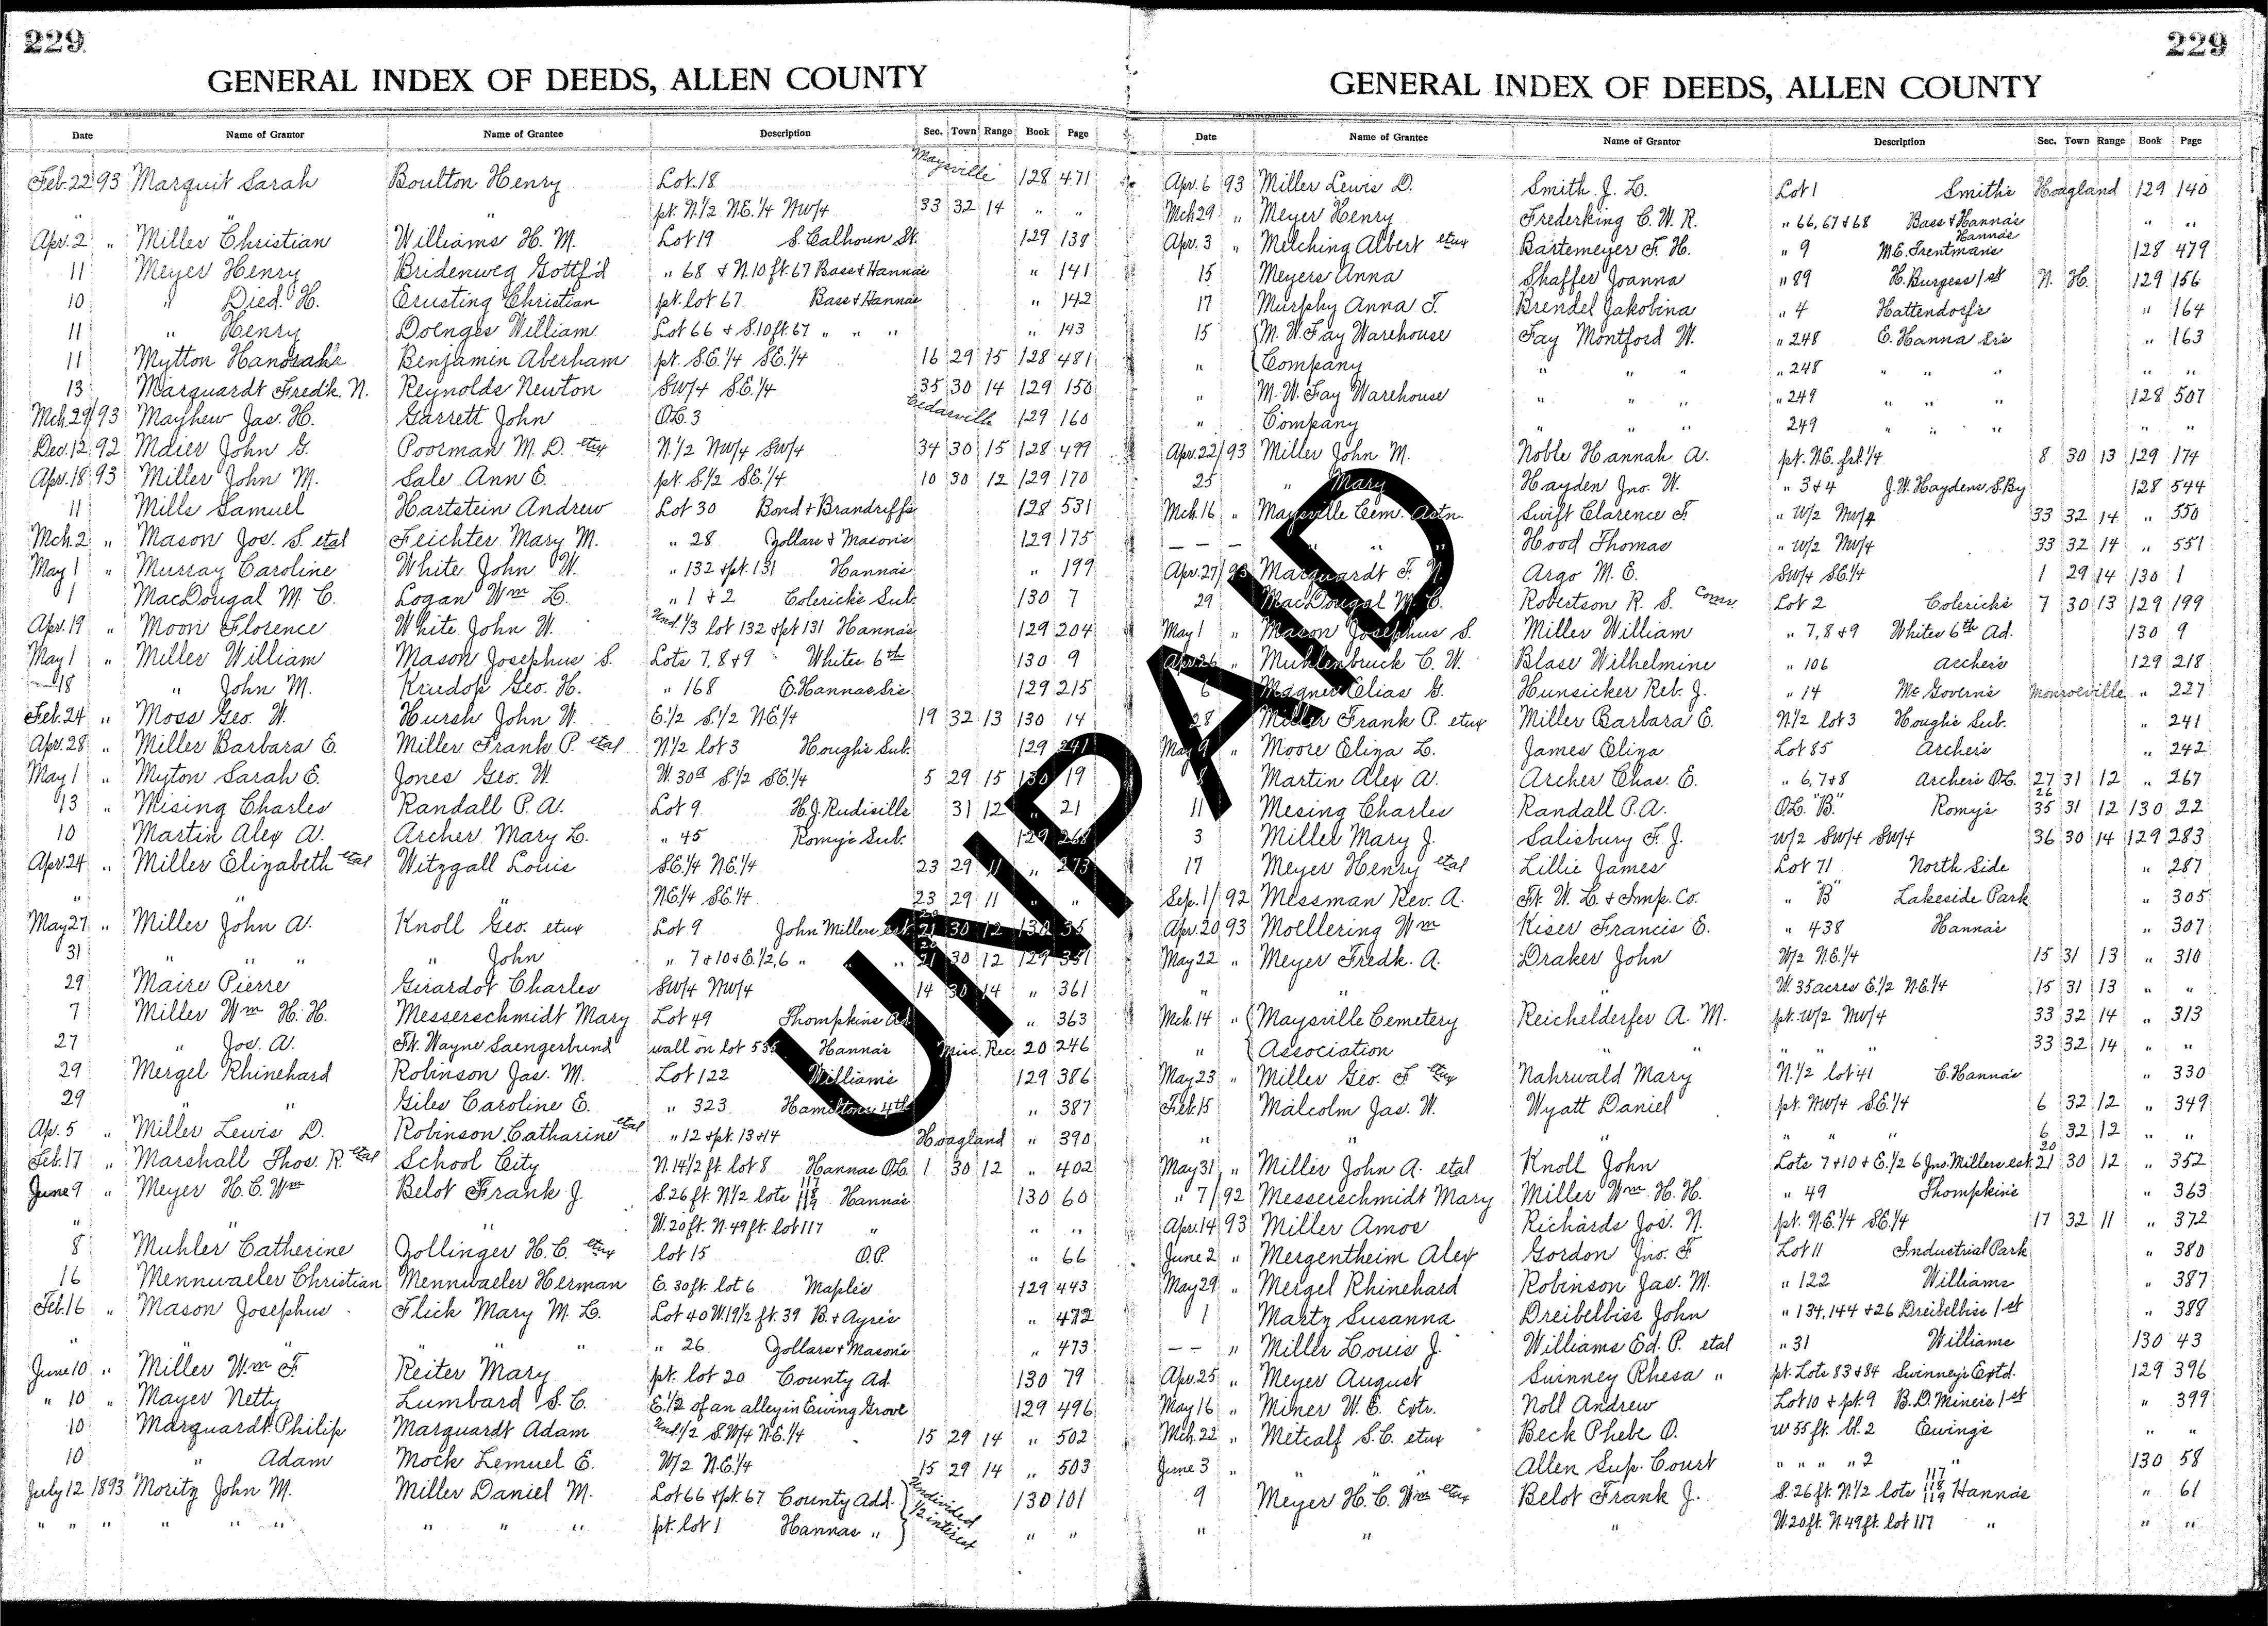 229
GENERAL INDEX OF DEEDS, ALLEN COUNTY
Date Name of Grantor Name of Grantee Description Sec. Town Range Book Page
Feb. 22 93 Marquit Sarah Boulton Henry Lot 18 Maysville 128 471
" " " pt. N. 1/2 N.E. 1/4 NW/4 33 32 14 " "
Apr. 2 " Miller Christian Williams H. M. Lot 19 S. Calhoun St. 129 138
11 Meyer Henry Bridenweg Gottf'd " 68 & N. 10 ft. 67 Bass & Hanna's " 141
10 " Died. H. Ernsting Christian pt. lot 67 Bass & Hanna's " 142
11 " Henry Doenges William Lot 66 & S. 10 ft. 67 " " " " 143
11 Mytton Benjamin Aberham pt. S.E. 1/4 S.E. 1/4 16 29 15 128 481
13 Marquardt Fred'k. N. Reynolds Newton SW/4 S.E. 1/4 35 30 14 129 150
Mch. 29/93 Mayhew Jas. H. Garrett John O.L. 3 Cedarville 129 160
Dec. 12 92 Maier John G. Poorman M. D. etux N. 1/2 NW/4 SW/4 34 30 15 128 499
Apr. 18 93 Miller John M. Sale Ann E. pt. S. 1/2 S.E. 1/4 10 30 12 129 170
11 Mills Samuel Hartstein Andrew Lot 30 Bond & Brandriff's 128 531
Mch. 2 " Mason Jos. S. etal Feichter Mary M. " 28 Zollars & Mason's 129 175
May 1 " Murray Caroline White John W. " 132 & pt. 131 Hanna's " 199
1 MacDougal M. C. Logan Wm L. " 1 & 2 Colerick's Sub. 130 7
Apr. 19 " Moon Florence White John W. Und. 1/3 lot 132 & pt 131 Hanna's 129 204
May 1 " Miller William Mason Josephus S. Lots 7, 8 & 9 Whites 6th 130 9
18 " John M. Krudop Geo. H. " 168 E. Hannas Srs. 129 215
Feb. 24 " Moss Geo. W. Hursh John W. E. 1/2 S. 1/2 N.E. 1/4 19 32 13 130 14
Apr. 28 " Miller Barbara E. Miller Frank P. etal N. 1/2 lot 3 Hough's Sub. 129 241
May 1 " Myton Sarah E. Jones Geo. W. W. 30a S. 1/2 S.E. 1/4 5 29 15 130 19
13 " Mising Charles Randall P. A. Lot 9 H. J. Rudisills 31 12 " 21
10 Martin Alex A. Archer Mary L. " 45 Romy's Sub. 129 268
Apr. 24 " Miller Elizabeth etal Witzgall Louis S.E. 1/4 N.E. 1/4 23 29 11 " 273
" " N.E. 1/4 S.E. 1/4 23 29 11 " "
May 27 " Miller John A. Knoll Geo. etux Lot 9 John Millers est. 20 21 30 12 130 35
31 " " " " John " 7 & 10 & E. 1/2, 6 " " " 20 21 30 12 129 351
29 Maire Pierre Girardot Charles SW/4 NW/4 14 30 14 " 361
7 Miller Wm H. H. Messerschmidt Mary Lot 49 Thompkins Ad. " 363
27 " Jos. A. Ft. Wayne Saengerbund wall on lot 535 Hanna's Misc. Rec. 20 246
29 Mergel Rhinehard Robinson Jas. M. Lot 122 William's 129 386
29 " " Giles Caroline E. " 323 Hamiltons 4th " 387
Ap. 5 " Miller Lewis D. Robinson Catharine etal " 12 & pt. 13 & 14 Hoagland " 390
Feb. 17 " Marshall Thos. R. etal School City N. 14 1/2 ft. lot 8 Hannas O.L. 1 30 12 " 402
June 9 " Meyer H. C. Wm Belot Frank J. S. 26 ft. N. 1/2 lots 117 118 119 Hanna's 130 60
" " " W. 20 ft. N. 49 ft. lot 117 " " "
8 Muhler Catherine Zollinger H. C. etux lot 15 O.P. " 66
16 Mennwaeler Christian Mennwaeler Herman E. 30 ft. lot 6 Maple's 129 443
Feb. 16 " Mason Josephus Flick Mary M. L. Lot 40 W. 19 1/2 ft. 39 B. & Ayres " 472
" " " " " " 26 Zollars & Mason's " 473
June 10 " Miller Wm F. Reiter Mary pt. lot 20 County Ad. 130 79
" 10 " Mayer Netty Lumbard S. C. E. 1/2 of an alley in Ewing Grove 129 496
10 Marquardt Philip Marquardt Adam Und. 1/2 S.W/4 N.E. 1/4 15 29 14 " 502
10 " Adam Mock Lemuel E. W/2 N.E. 1/4 15 29 14 " 503
July 12 1893 Moritz John M. Miller Daniel M. Lot 66 & pt. 67 County Add. Undivided 1/2 interest 130 101
" " " " " " " " " pt. lot 1 Hannas " " "
229
GENERAL INDEX OF DEEDS, ALLEN COUNTY
Date Name of Grantee Name of Grantor Description Sec. Town Range Book Page
Apr. 6 93 Miller Lewis D. Smith J. L. Lot 1 Smiths Hoagland 129 140
Mch 29 " Meyer Henry Frederking C. W. R. " 66, 67 & 68 Bass & Hanna's " "
Apr. 3 " Melching Albert etux Bartemeyer F. H. " 9 M.E. Trentman's Hanna's 128 479
15 Meyers Anna Shaffer Joanna " 89 H. Burgess 1st N. H. 129 156
17 Murphy Anna T. Brendel Jakobina " 4 Hattendorf's " 164
15 M. W. Fay Warehouse Fay Montford W. " 248 E. Hanna Srs " 163
" Company " " " " 248 " " " " "
" M. W. Fay Warehouse " " " " 249 " " " 128 507
" Company " " " 249 " " " " "
Apr. 22/93 Miller John M. Noble Hannah A. pt. N.E. frl. 1/4 8 30 13 129 174
25 " Mary Hayden Jno. W. " 3 & 4 J. W. Haydens S. By 128 544
Mch. 16 " Maysville Cem. Astn. Swift Clarence F. " W/2 NW/4 33 32 14 " 550
— — — " " " Hood Thomas " W/2 NW/4 33 32 14 " 551
Apr. 27/93 Marquardt F. N. Argo M. E. SW/4 S.E. 1/4 1 29 14 130 1
29 MacDougal M. C. Robertson R. S. Comr. Lot 2 Colerick's 7 30 13 129 199
May 1 " Mason Josephus S. Miller William " 7, 8 & 9 Whites 6th Ad. 130 9
Apr. 26 " Muhlenbruck C. W. Blase Wilhelmine " 106 Archer's 129 218
6 Magner Elias G. Hunsicker Reb. J. " 14 McGovern's Monroeville " 227
28 Miller Frank P. etux Miller Barbara E. N. 1/2 lot 3 Hough's Sub. " 241
May 9 " Moore Eliza L. James Eliza Lot 85 Archer's " 242
8 Martin Alex A. Archer Chas. E. " 6, 7 & 8 Archer's O.L. 27 31 12 " 267
11 Mesing Charles Randall P. A. O.L. "B" Romy's 26 35 31 12 130 22
3 Miller Mary J. Salisbury F. J. W/2 SW/4 SW/4 36 30 14 129 283
17 Meyer Henry etal Lillie James Lot 71 North Side " 287
Sep. 1/92 Messman Rev. A. Ft. W. L. & Imp. Co. " "B" Lakeside Park " 305
Apr. 20 93 Moellering Wm Kiser Francis E. " 438 Hanna's " 307
May 22 " Meyer Fredk. A. Draker John W/2 N.E. 1/4 15 31 13 " 310
" " " W. 35 acres E. 1/2 N.E. 1/4 15 31 13 " "
Mch. 14 " Maysville Cemetery Reichelderfer A. M. pt. W/2 NW/4 33 32 14 " 313
" Association " " " " " 33 32 14 " "
May 23 " Miller Geo. F etux Nahrwald Mary N. 1/2 lot 41 E. Hanna's " 330
Feb. 15 Malcolm Jas. W. Wyatt Daniel pt. NW/4 S.E. 1/4 6 32 12 " 349
" " " " " " 6 32 12 " "
May 31 " Miller John A. etal Knoll John Lots 7 & 10 & E. 1/2 6 Jno. Millers est. 20 21 30 12 " 352
" 7/92 Messerschmidt Mary Miller Wm. H. H. " 49 Thompkins " 363
Apr. 14 93 Miller Amos Richards Jos. N. pt. N.E. 1/4 S.E. 1/4 17 32 11 " 372
June 2 " Mergentheim Alex Gordon Jno. F Lot 11 Industrial Park " 380
May 29 " Mergel Rhinehard Robinson Jas. M. " 122 Williams " 387
1 Marty Susanna Dreibelbiss John " 134, 144 & 26 Dreibelbiss 1st " 388
— — " Miller Louis J. Williams Ed. P. etal " 31 Williams 130 43
Apr. 25 " Meyer August Swinney Rhesa " pt. Lots 83 & 84 Swinney's Extd. 129 396
May 16 " Miner W. E. Extr. Noll Andrew Lot 10 & pt. 9 B. D. Miner's 1st " 399
Mch. 22 " Metcalf S. C. etux Beck Phebe O. W 55 ft. bl. 2 Ewing's " "
June 3 " " " Allen Sup. Court " " " " 2 " 130 58
9 Meyer H. C. Wm etux Belot Frank J. S. 26 ft. N. 1/2 lots 117 118 119 Hanna's " 61
" " " W. 20 ft. N 49 ft. lot 117 " " "
UNPAID